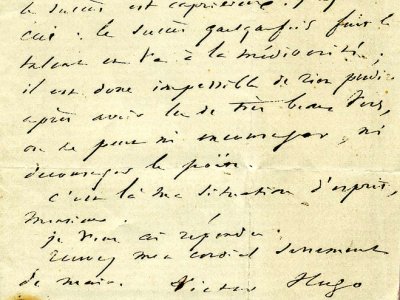 le succès est capricieux.
ceci : le succès quelquefois fuit le
talent et va à la médiocrité ;
il est donc impossible de rien prédire
après avoir lu de très beaux vers,
on ne peut ni encourager, ni
décourager le poëte.
c'est là ma situation d'esprit,
monsieur.
je viens répondre.
recevez mon cordial serrement
de main. Victor Hugo